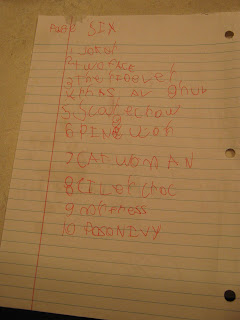 PAGE SIX
1 JOKeR
2 TWO FACE
3 The RIDDLeR
4 RAS AL Ghul
5 Scarecrow
6 PINGWOR
7 CATWOMAN
8 CILLef CROC
9
10 POSON IVY